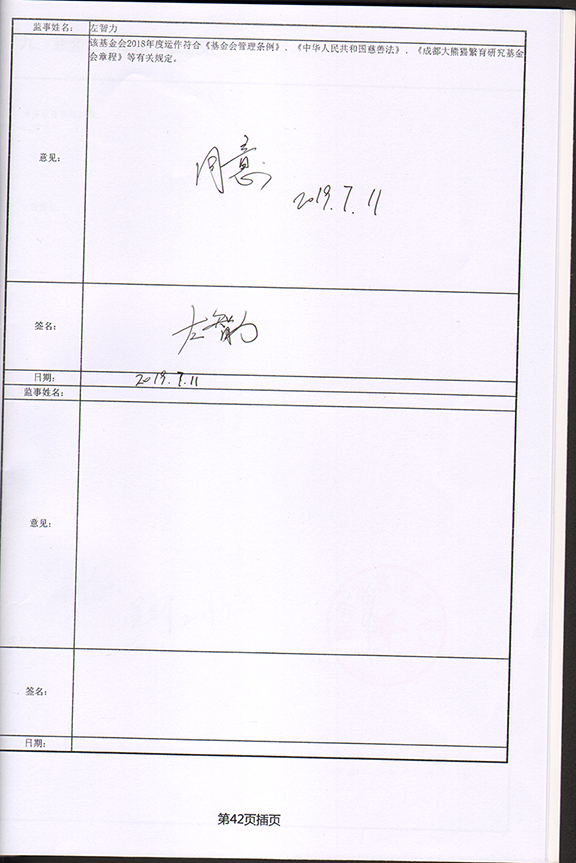 监事姓名: 左智力
该基金会2018年度运作符合《基金会管理条例》、《中华人民共和国慈善法》、《成都大熊猫繁育研究基金
会章程》等有关规定。
意见:
同意
2019.7.11
签名: 左智力
日期: 2019.7.11
监事姓名:
意见:
签名:
日期:
第42页插页